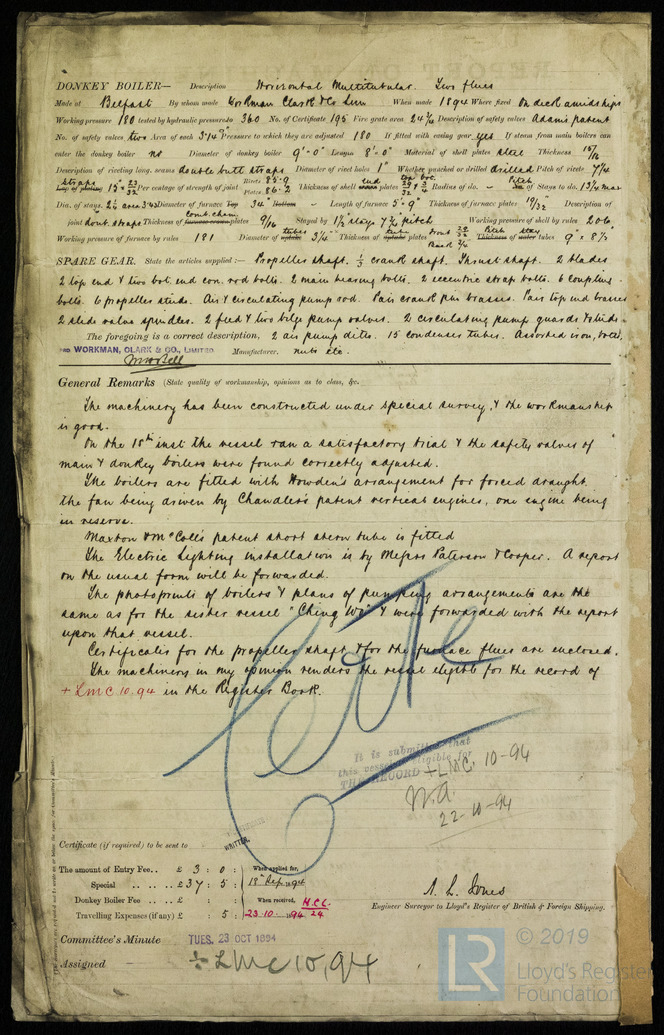 DONKEY BOILER— Description Horizontal Multitubular. Two flues
Made at Belfast By whom made Workman Clark & Co Lim When made 1894 Where fixed On deck amidships
Working pressure 180 tested by hydraulic pressure to 360 No. of Certificate 195 Fire grate area 24 Description of safety valves Adams patent
No. of safety valves two Area of each 3.14" Pressure to which they are adjusted 180 If fitted with easing gear yes If steam from main boilers can
enter the donkey boiler no Diameter of donkey boiler 9'-0" Length 8'-0" Material of shell plates steel Thickness 15/16
Description of riveting long. seams double butt straps Diameter of rivet holes 1" Whether punched or drilled drilled Pitch of rivets 7 1/4
Straps Per centage of strength of joint Rivets 85.9 Plates 86.2 Thickness of shell end plates Radius of do. — Pitch of Stays to do. 13 1/4 max
Dia. of stays. 2 1/2 Diameter of furnace 34" Length of furnace 5'-9" Thickness of plates 19/32 Description of
joint dont. straps Thickness of comb. cham. plates 9/16 Stayed by 1 1/2 stays 7 3/4 pitch Working pressure of shell by rules 206
Working pressure of furnace by rules 181 Diameter of tubes 3 1/4 Thickness of tube plates Front Back Pitch stay tubes 9" × 8 5/8
SPARE GEAR. State the articles supplied:— Propeller shaft. 1/3 crank shaft. Thrust shaft. 2 blades
2 top end & two bot. end con. rod bolts. 2 main bearing bolts. 2 eccentric strap bolts. 6 coupling
bolts. 6 propeller studs. Air & circulating pump rod. Pair crank pin brasses. Pair top end brasses
2 slide valve spindles. 2 feed & two bilge pump valves. 2 circulating pump guards & studs.
The foregoing is a correct description, 2 air pump ditto. 15 condenser tubes. Assorted iron, bolts,
WORKMAN, CLARK & CO., LIMITED Manufacturer. nuts etc.
General Remarks (State quality of workmanship, opinions as to class, &c.
The machinery has been constructed under special survey, & the workmanship
is good.
On the 18th inst the vessel ran a satisfactory trial & the safety valves of
main & donkey boilers were found correctly adjusted.
The boilers are fitted with Howden's arrangement for forced draught
the fan being driven by Chandler's patent vertical engines, one engine being
in reserve.
Maxton & McColl's patent short stern tube is fitted
The Electric Lighting installation is by Messrs Paterson & Cooper. A report
on the usual form will be forwarded.
The photoprints of boilers & plans of pumping arrangements are the
same as for the sister vessel "Ching Wo" & were forwarded with the report
upon that vessel.
Certificates for the propeller shaft & for the furnace flues are enclosed.
The machinery in my opinion renders the vessel eligible for the record of
+ LMC 10.94 in the Register Book.
It is submitted that
this vessel is eligible for
THE RECORD + LMC. 10-94
W.A.
22-10-94
Certificate (if required) to be sent to
WRITTEN.
The amount of Entry Fee.. £ 3 : 0 : When applied for,
Special .. .. .. .. £ 37 : 5 : 18th Sep. 1894
Donkey Boiler Fee .. .. £ : : When received, H.C.C.
Travelling Expenses (if any) £ : 5 : 23.10.1894 24
A. L. Jones
Engineer Surveyor to Lloyd's Register of British & Foreign Shipping.
Committee's Minute TUES. 23 OCT 1894
Assigned + LMC 10,94
LR © 2019
Lloyd's Register
Foundation